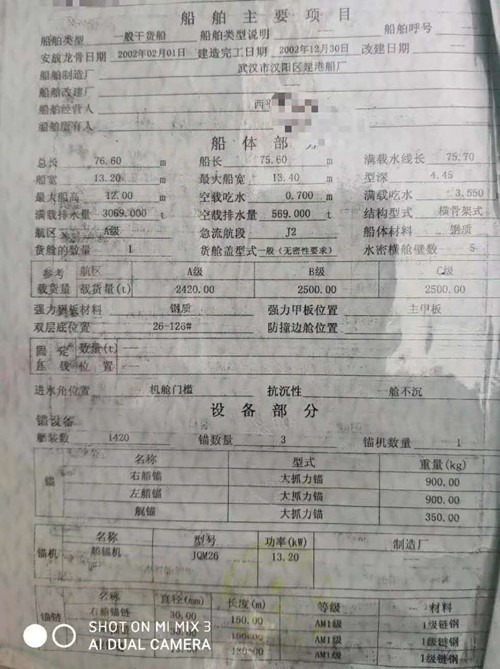 船舶主要项目
船舶类型 一般干货船 船舶类型说明 船舶呼号
安放龙骨日期 2002年02月01日 建造完工日期 2002年12月30日 改建日期
船舶制造厂 武汉市汉阳区是港船厂
船舶改建厂
船舶经营人 西
船舶所有人
船体部
总长 76.60 m 船长 75.60 m 满载水线长 75.70
船宽 13.20 m 最大船宽 13.40 m 型深 4.45
最大船高 12.00 m 空载吃水 0.700 m 满载吃水 3.550
满载排水量 3069.000 t 空载排水量 569.000 t 结构型式 横骨架式
航区 A级 急流航段 J2 船体材料 钢质
货舱的数量 1 货舱盖型式 一般（无密性要求） 水密横舱壁数 5
参考 航区 A级 B级 C级
载货量 载货量(t) 2420.00 2500.00 2500.00
强力甲板材料 钢质 强力甲板位置 主甲板
双层底位置 26-126# 防撞边舱位置
固定 数量(t)
压载 位置
进水角位置 机舱门槛 抗沉性 一舱不沉
设备部分
锚设备
舾装数 1420 锚数量 3 锚机数量 1
名称 型式 重量(kg)
锚 右船锚 大抓力锚 900.00
左船锚 大抓力锚 900.00
艉锚 大抓力锚 350.00
名称 型号 功率(kW) 制造厂
锚机 船锚机 JQM26 13.20
名称 直径(mm) 长度(m) 等级 材料
锚链 右船锚链 30.00 150.00 AM1级 1级链钢
AM1级 1级链钢
AM1级 1级链钢
SHOT ON MI MIX 3
AI DUAL CAMERA